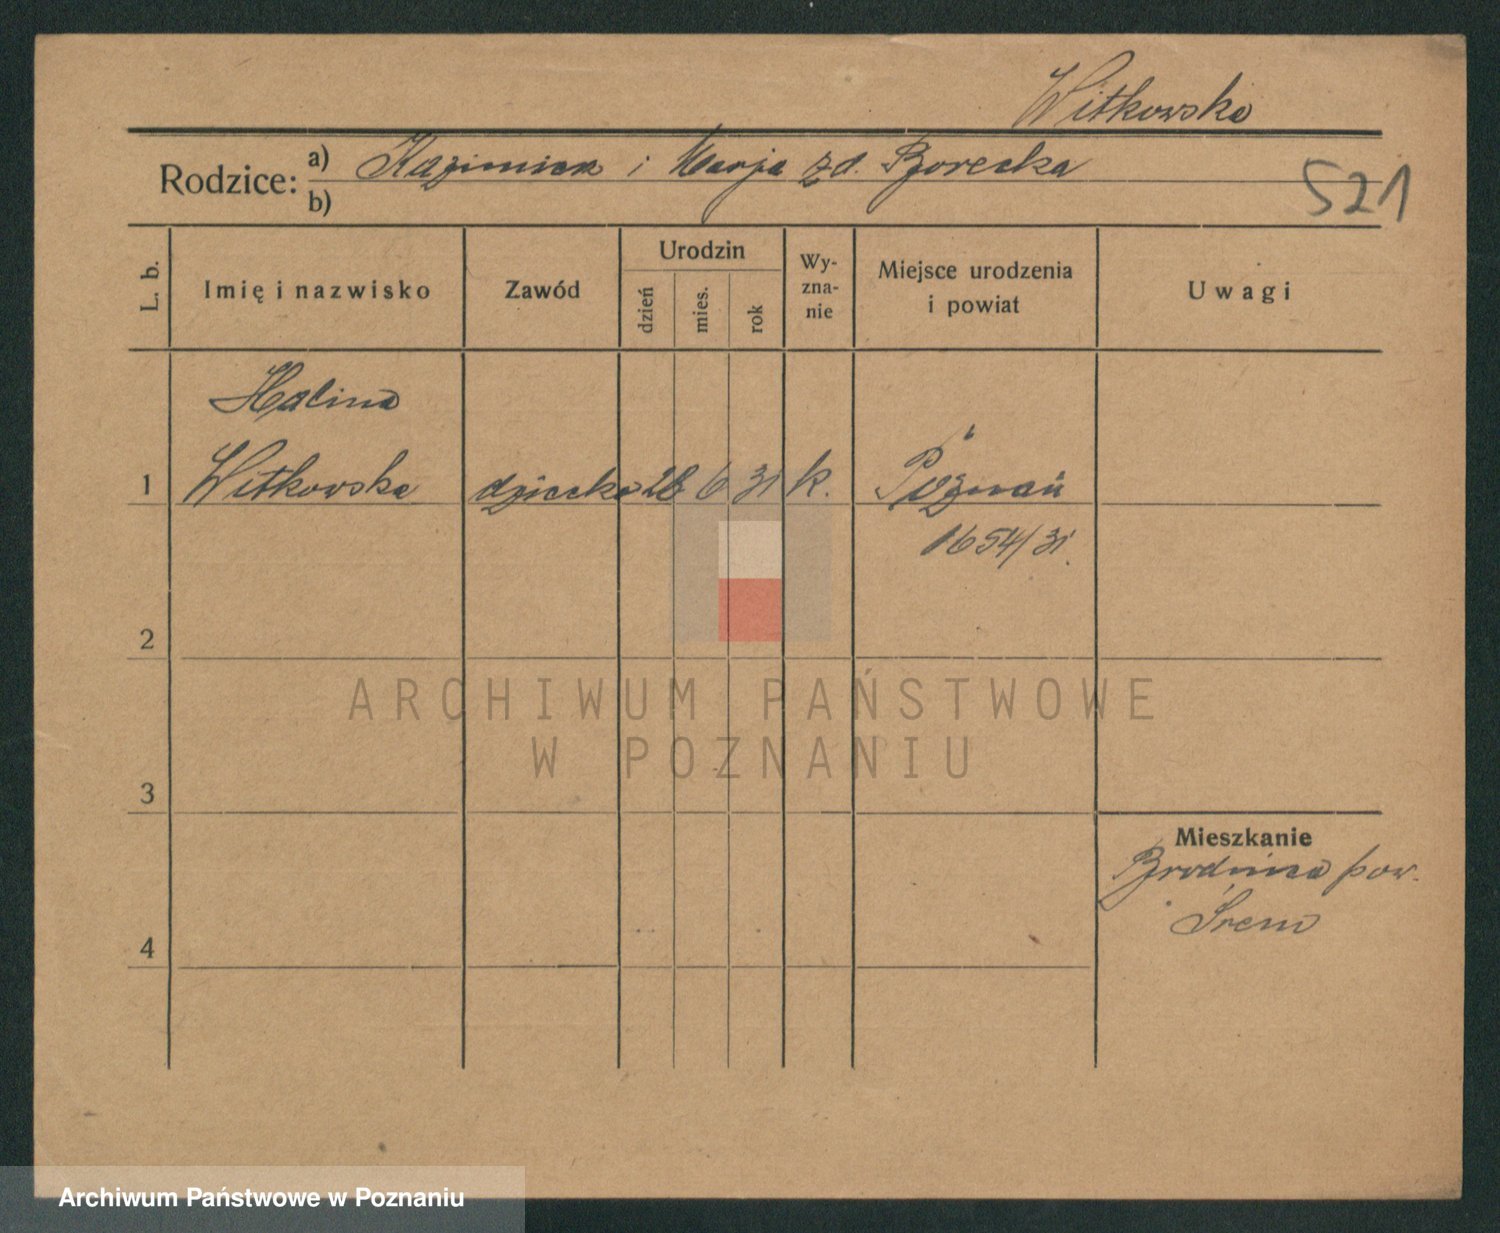 Witkowska
Rodzice: a) Kazimierz i Marja zd. Borecka
b)
521
L. b.
Imię i nazwisko
Zawód
Urodzin
dzień
mies.
rok
Wy-
zna-
nie
Miejsce urodzenia
i powiat
Uwagi
Halina
1 Witkowska dziecko 28 6 31 k. Poznań
1654/31.
2
ARCHIWUM PAŃSTWOWE
W POZNANIU
3
Mieszkanie
Brodnica pow.
Śrem
4
Archiwum Państwowe w Poznaniu